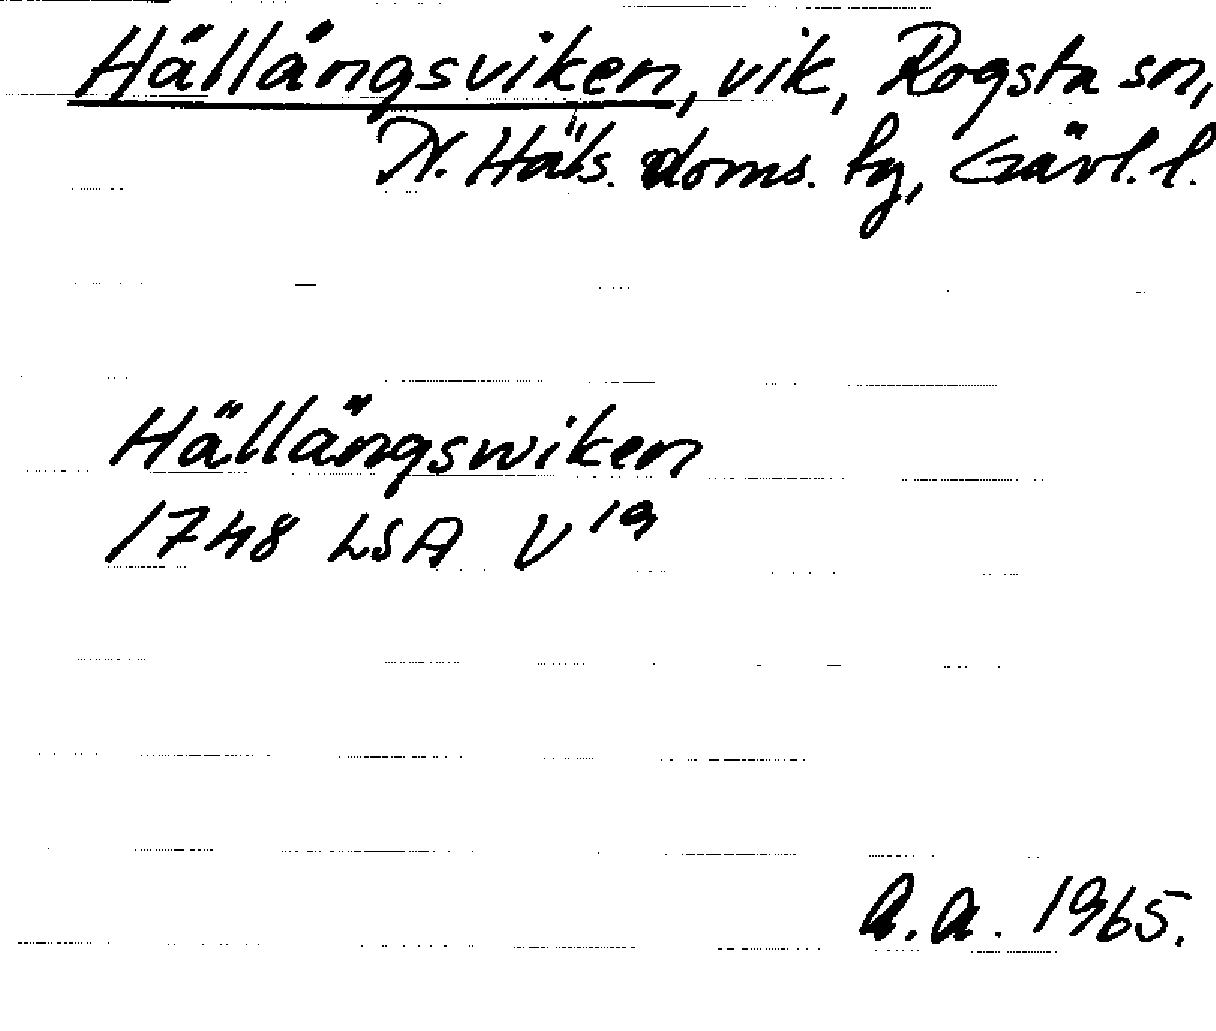 Hällångsviken, vik, Rogsta sn,
N. Häls. doms. tg, Gävl. l.
Hällångswiken
1748 LSA V 19
A.A. 1965.